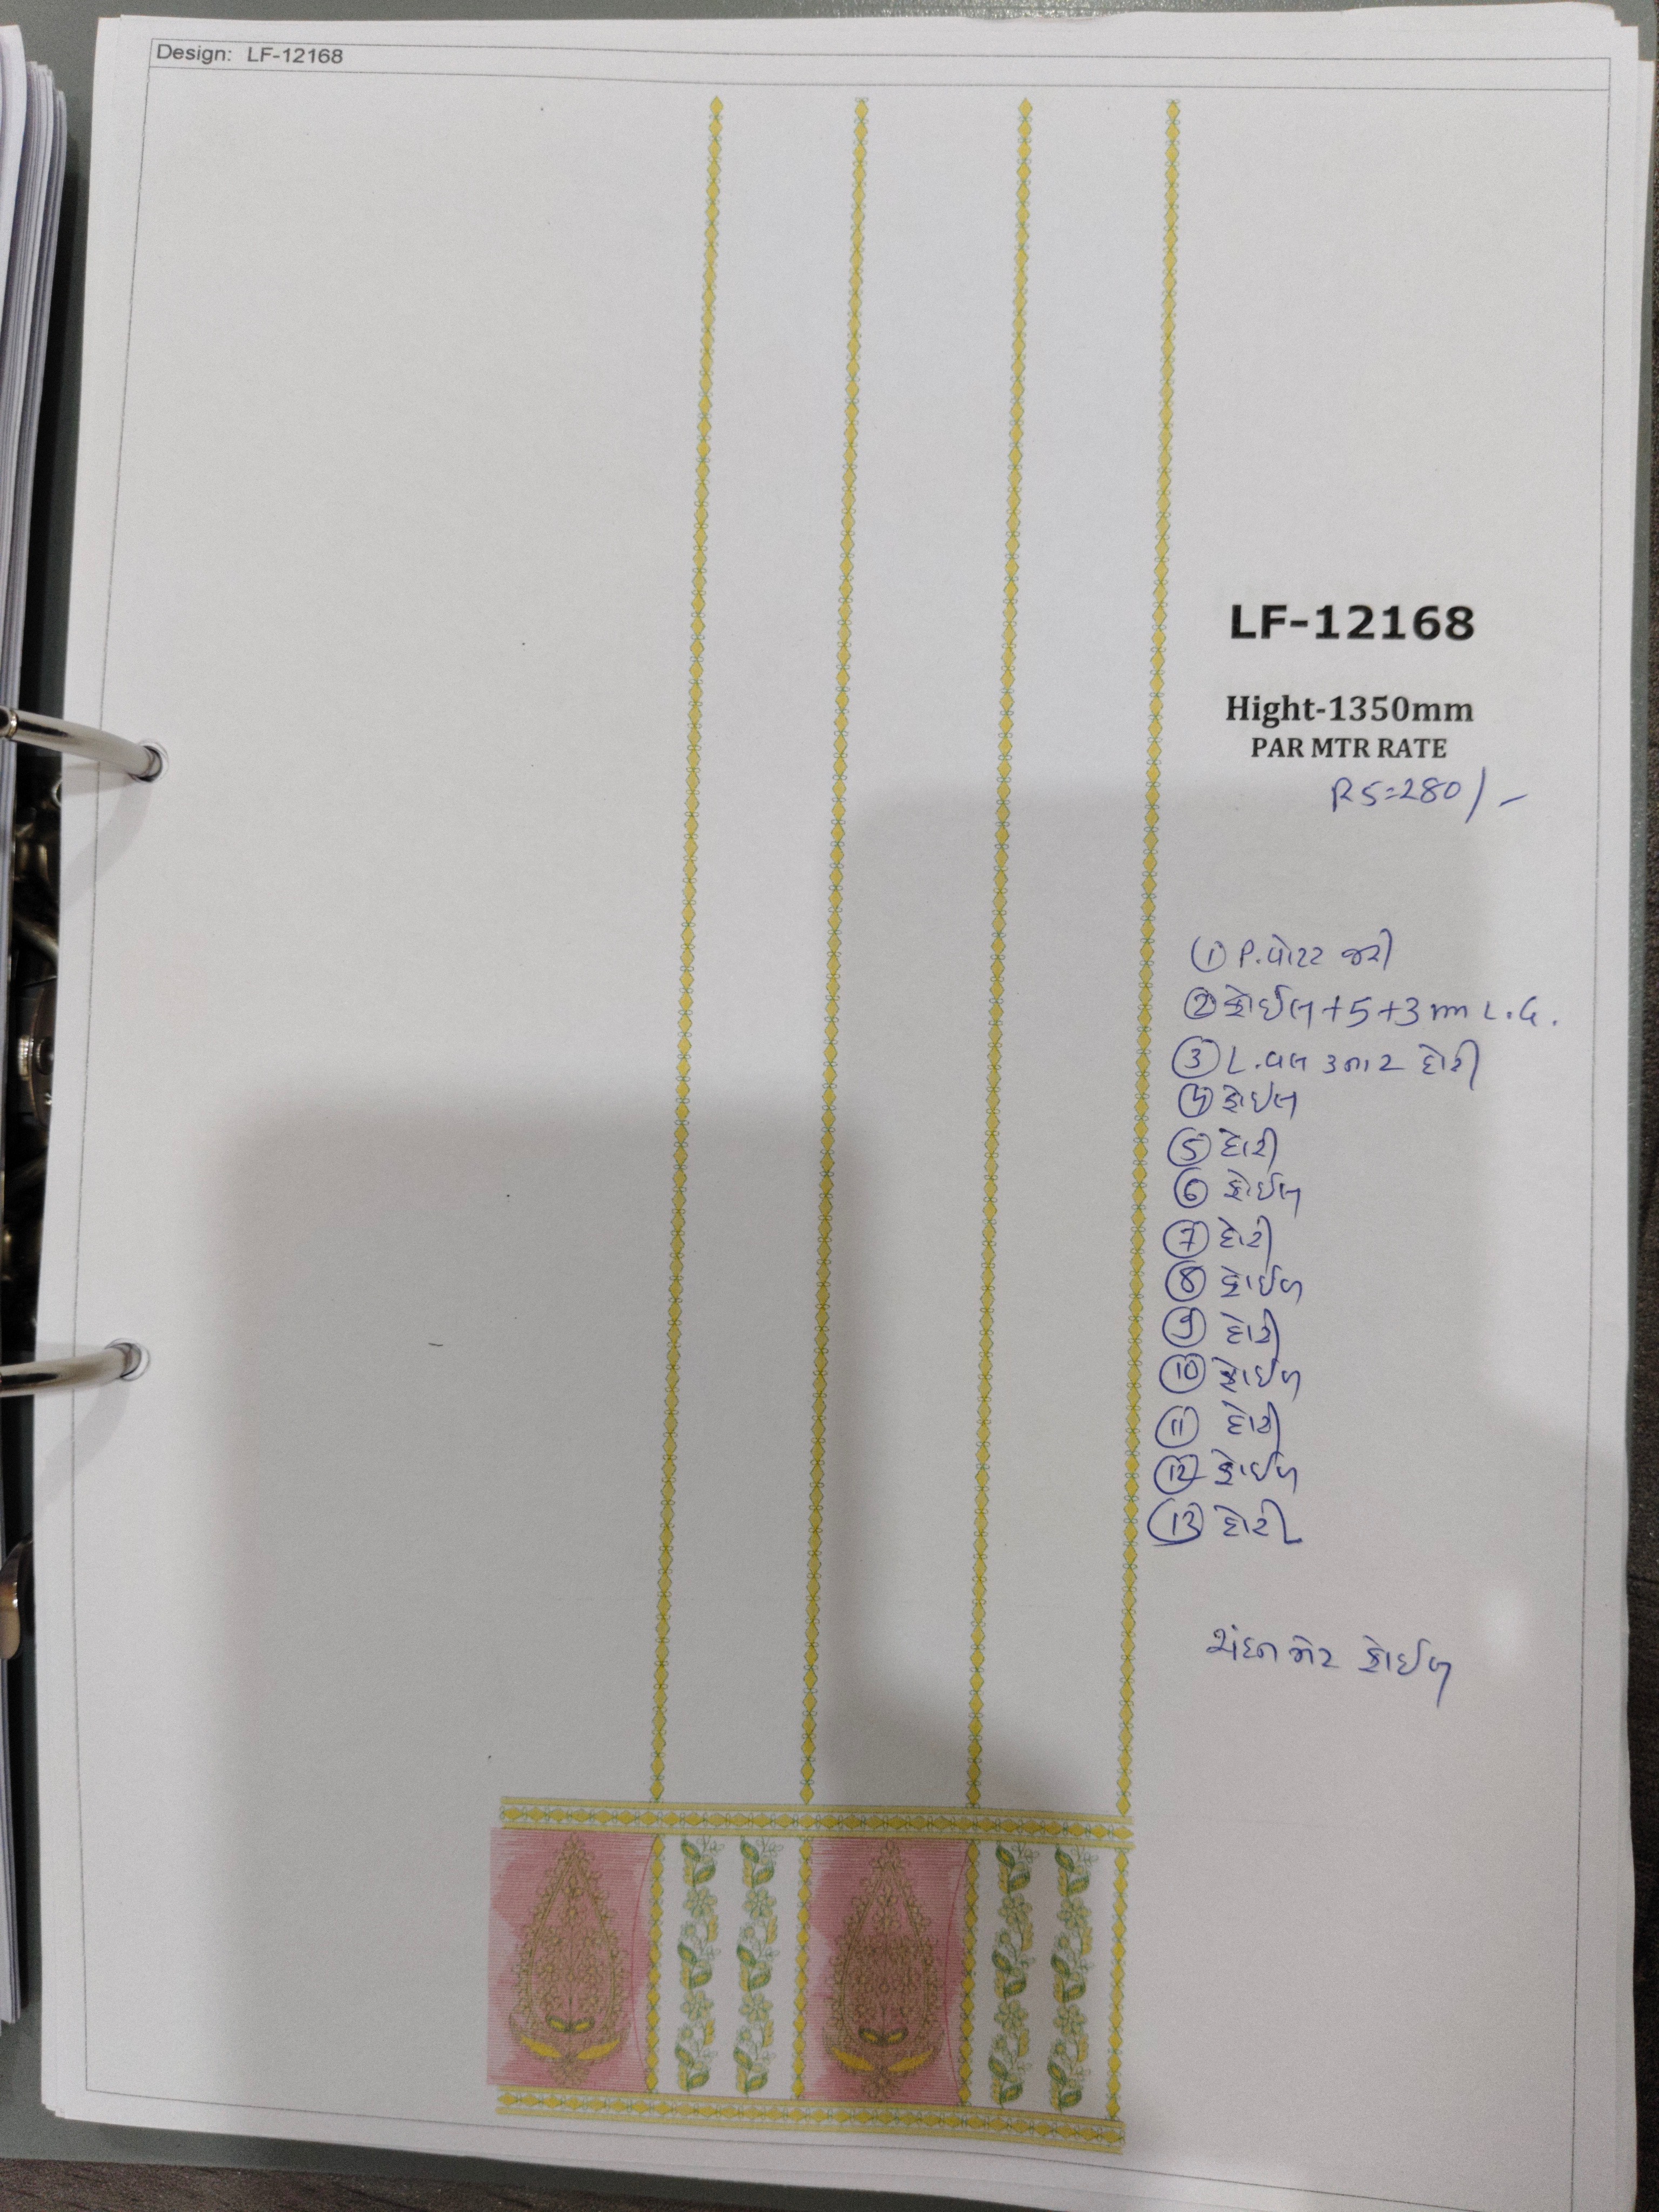 Design: LF-12168
LF-12168
Hight-1350mm
PAR MTR RATE
RS=280/-
① P.વોટર જરી
② ફોઈલ+5+3mm L.G.
③ L.વલ ૩તાર દોરી
④ ફોઈલ
⑤ દોરી
⑥ ફોઈલ
⑦ દોરી
⑧ ફોઈલ
⑨ દોરી
⑩ ફોઈલ
⑪ દોરી
⑫ ફોઈલ
⑬ દોરી
ફોઈલ